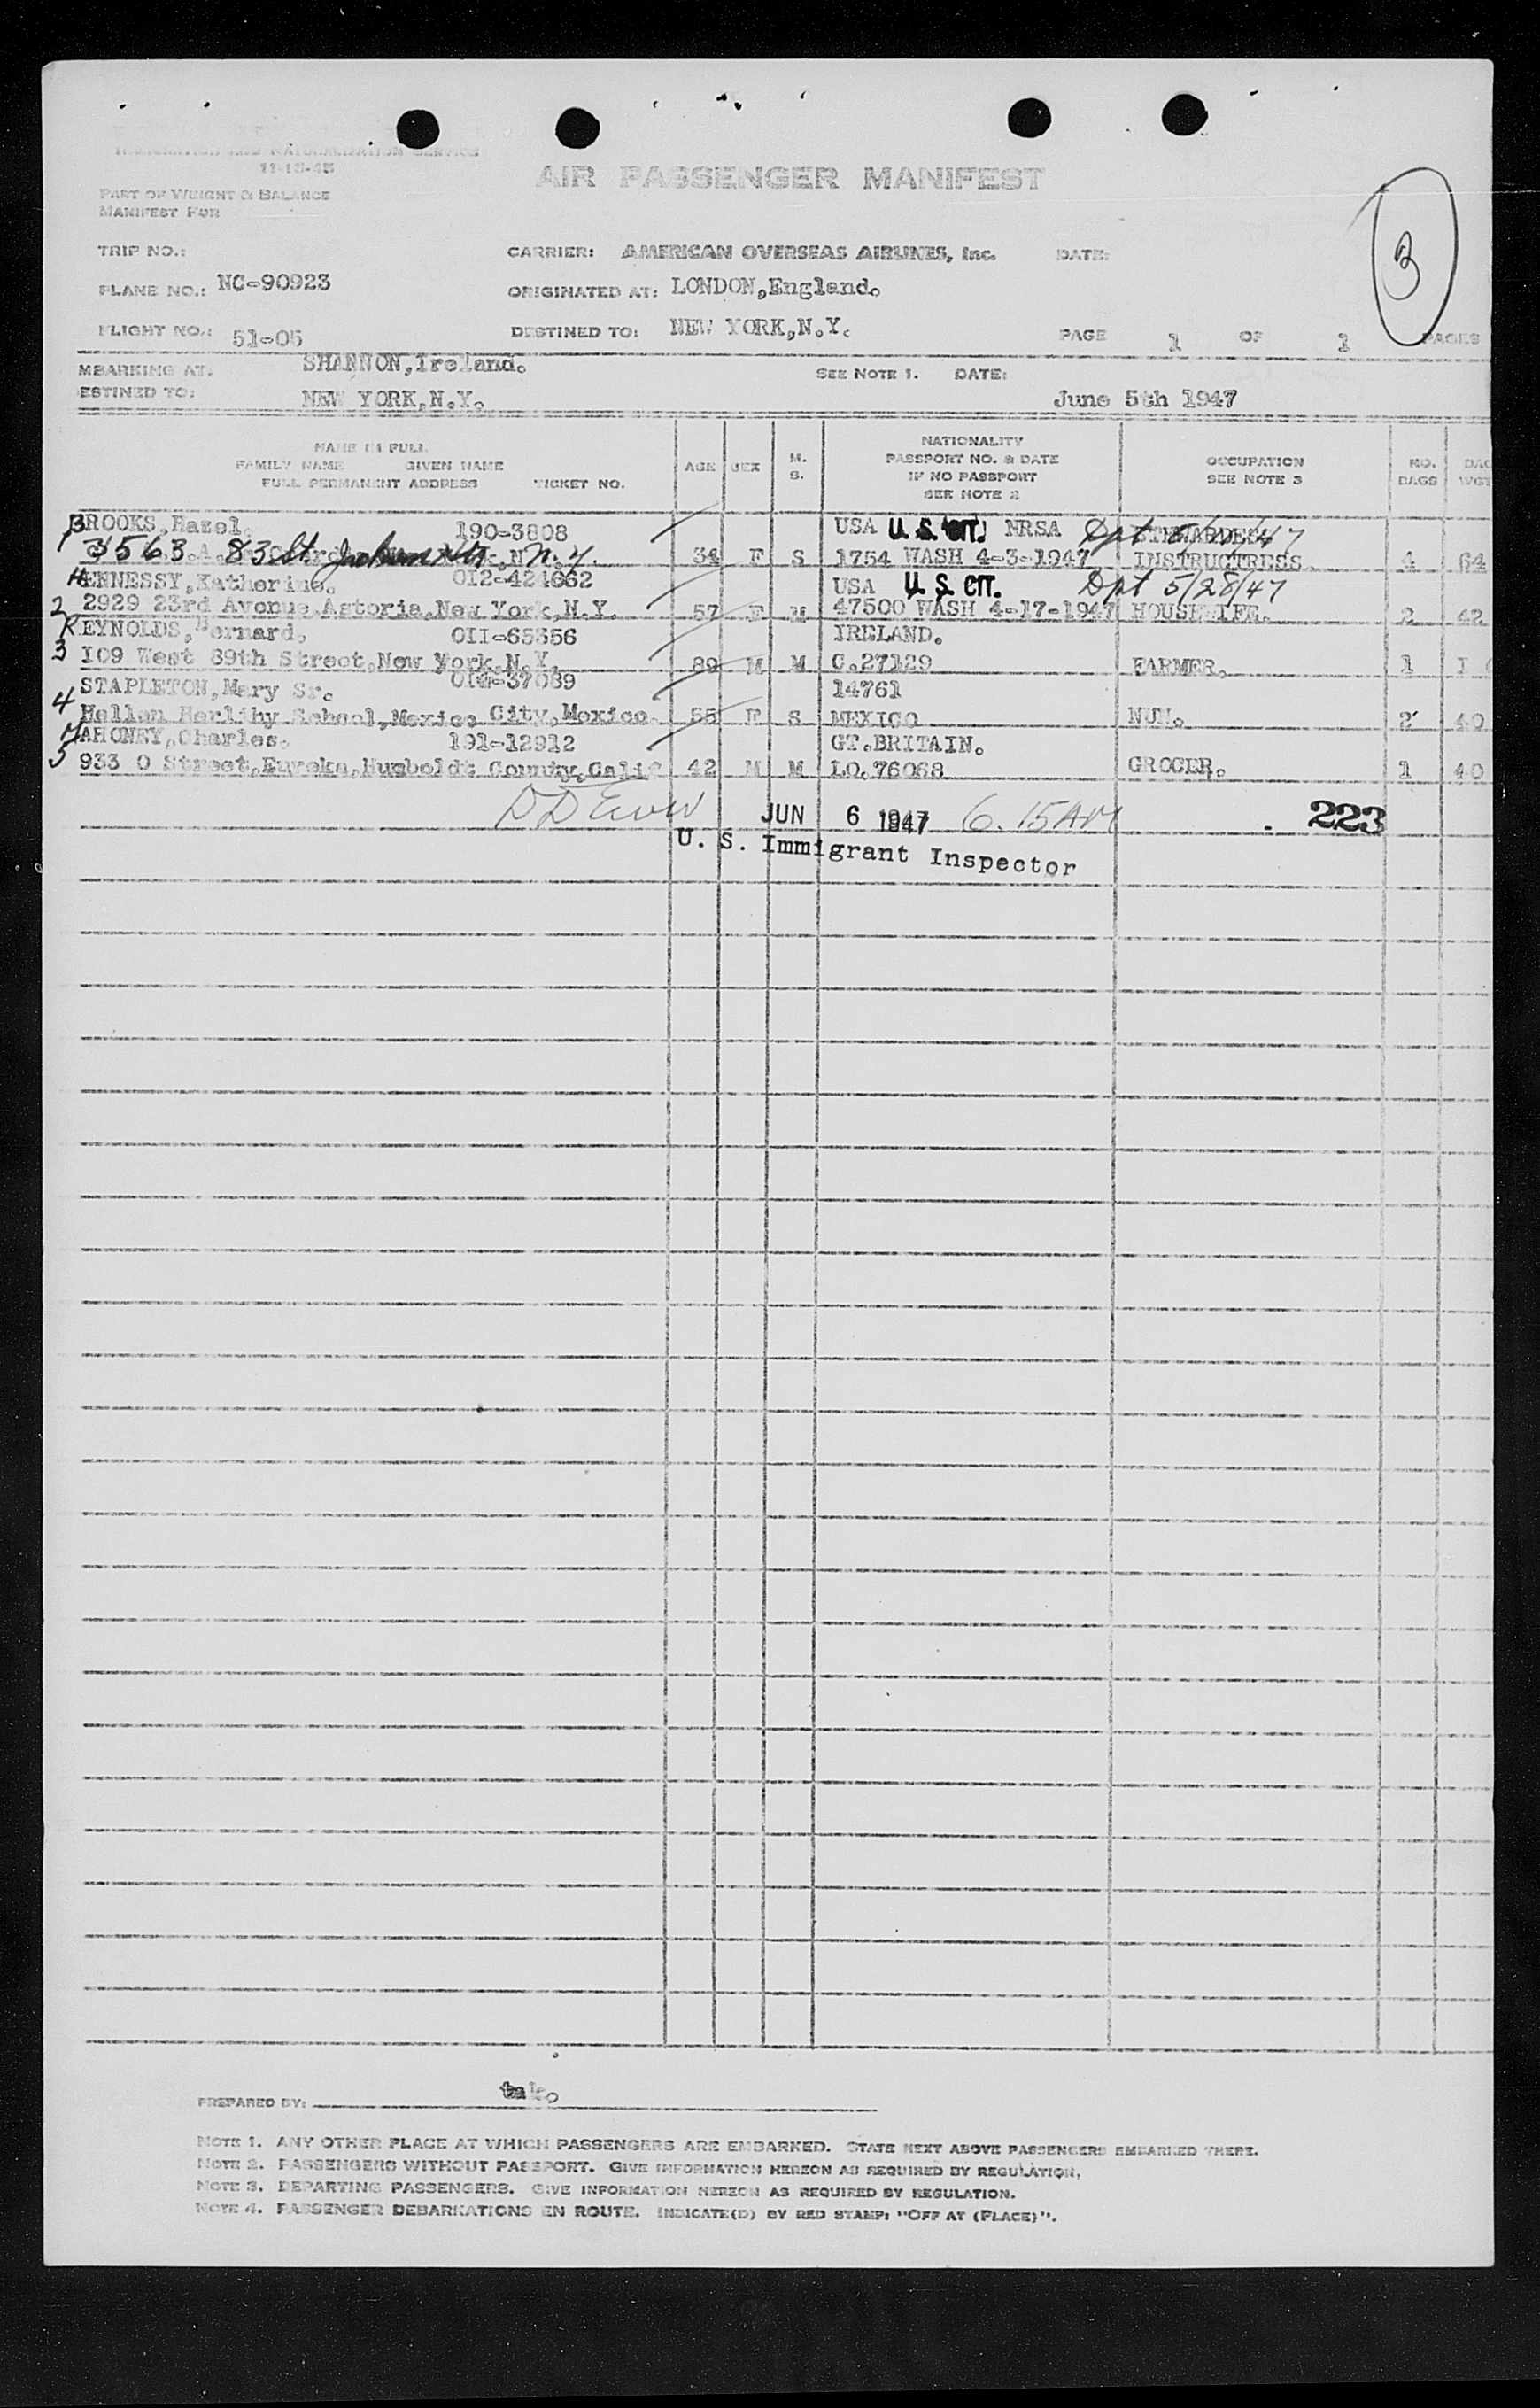 IMMIGRATION AND NATURALIZATION SERVICE
11-15-45
AIR PASSENGER MANIFEST
PART OF WEIGHT & BALANCE
MANIFEST FOR
3
TRIP NO.: CARRIER: AMERICAN OVERSEAS AIRLINES, Inc. DATE:
PLANE NO.: NC-90923 ORIGINATED AT: LONDON,England.
FLIGHT NO.: 51-05 DESTINED TO: NEW YORK,N.Y. PAGE 1 OF 1 PAGES
MBARKING AT. SHANNON,Ireland. SEE NOTE 1. DATE:
ESTINED TO: NEW YORK,N.Y. June 5th 1947
NAME IN FULL
FAMILY NAME GIVEN NAME
FULL PERMANENT ADDRESS TICKET NO. AGE SEX M. S. NATIONALITY PASSPORT NO. & DATE IF NO PASSPORT SEE NOTE 2 OCCUPATION SEE NOTE 3 NO. BAGS BAG WGT
BROOKS,Hazel. 190-3808 USA U. S. CIT. NRSA Dpt
1 3563 83 St. Jackson Hts N.Y. 34 F S 1754 WASH 4-3-1947 INSTRUCTRESS. 4 64
HENNESSY,Katherine. OI2-424662 USA U. S. CIT. Dpt 5/28/47
2 2929 23rd Avenue,Astoria,New York,N.Y. 57 F M 47500 WASH 4-17-1947 HOUSEWIFE. 2 42
REYNOLDS,Bernard. OII-65356 IRELAND.
3 I09 West 89th Street,New York,N.Y. 89 M M C.27129 FARMER. 1
STAPLETON,Mary Sr. 37089 14761
4 Hellan Herlihy School,Mexico City,Mexico. 55 F S MEXICO NUN. 2 40
MAHONEY,Charles. 191-12912 GT.BRITAIN.
5 933 O Street,Eureka,Humboldt County,Calif 42 M M LO.76068 GROCER. 1 40
JUN 6 1947 6.15AM 223
U. S. Immigrant Inspector
PREPARED BY:
NOTE 1. ANY OTHER PLACE AT WHICH PASSENGERS ARE EMBARKED. STATE NEXT ABOVE PASSENGERS EMBARKED THERE.
NOTE 2. PASSENGERS WITHOUT PASSPORT. GIVE INFORMATION HEREON AS REQUIRED BY REGULATION.
NOTE 3. DEPARTING PASSENGERS. GIVE INFORMATION HEREON AS REQUIRED BY REGULATION.
NOTE 4. PASSENGER DEBARKATIONS EN ROUTE. INDICATE(D) BY RED STAMP: "OFF AT (PLACE)".